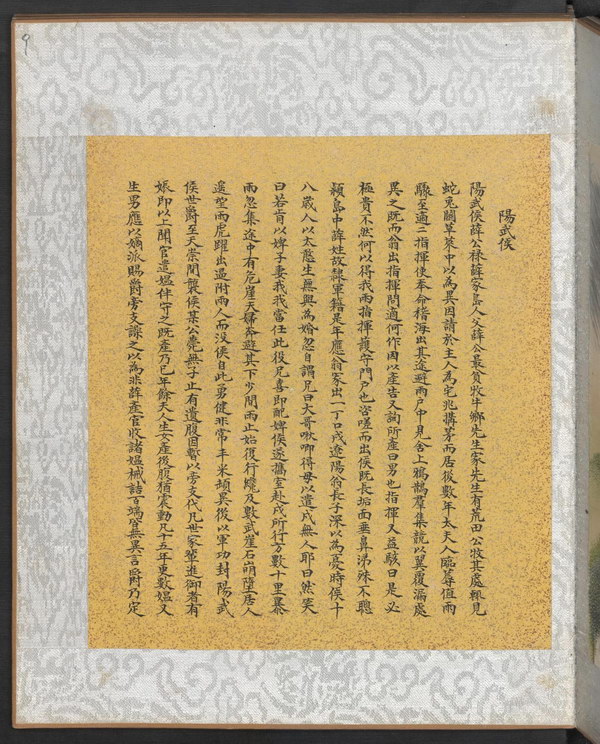 陽武侯
陽武侯薛公祿薛家島人父薛公最貧牧牛鄉先生家先生有荒田公牧其處輒見
蛇兔鬭草萊中以為異因請於主人為宅兆搆茅而居後數年太夫人臨蓐值雨
驟至適二指揮使奉命稽海出其途避雨戶中見舍上鴉鵲羣集競以翼覆漏處
異之既而翁出指揮問適何作因以產告又詢所產曰男也指揮又益駭曰是必
極貴不然何以得我兩指揮護守門戶也咨嗟而出侯既長垢面垂鼻涕殊不聰
穎島中薛姓故隸軍籍是年應翁家出一丁口戍遼陽翁長子深以為憂時侯十
八歲人以太憨生無與為婚忽自謂兄曰大哥啾唧得毋以遣戍無人耶曰然笑
曰若肯以婢子妻我我當任此役兄喜即配婢侯遂攜室赴戍所行方數十里暴
雨忽集途中有危崖夫婦奔避其下少間雨止始復行纔及數武崖石崩墜居人
遙望兩虎躍出逼附兩人而沒侯自此勇健非常丰采頓異後以軍功封陽武
侯世爵至天崇間襲侯某公薨無子止有遺腹因暫以旁支代凡世家進御者有
娠即以上聞官遣媼伴守之既產乃已年餘夫人生女產後腹猶震動凡十五年更數媼又
生男應以嫡派賜爵旁支譟之以為非薛產官收諸媼械詰百端皆無異言爵乃定
9